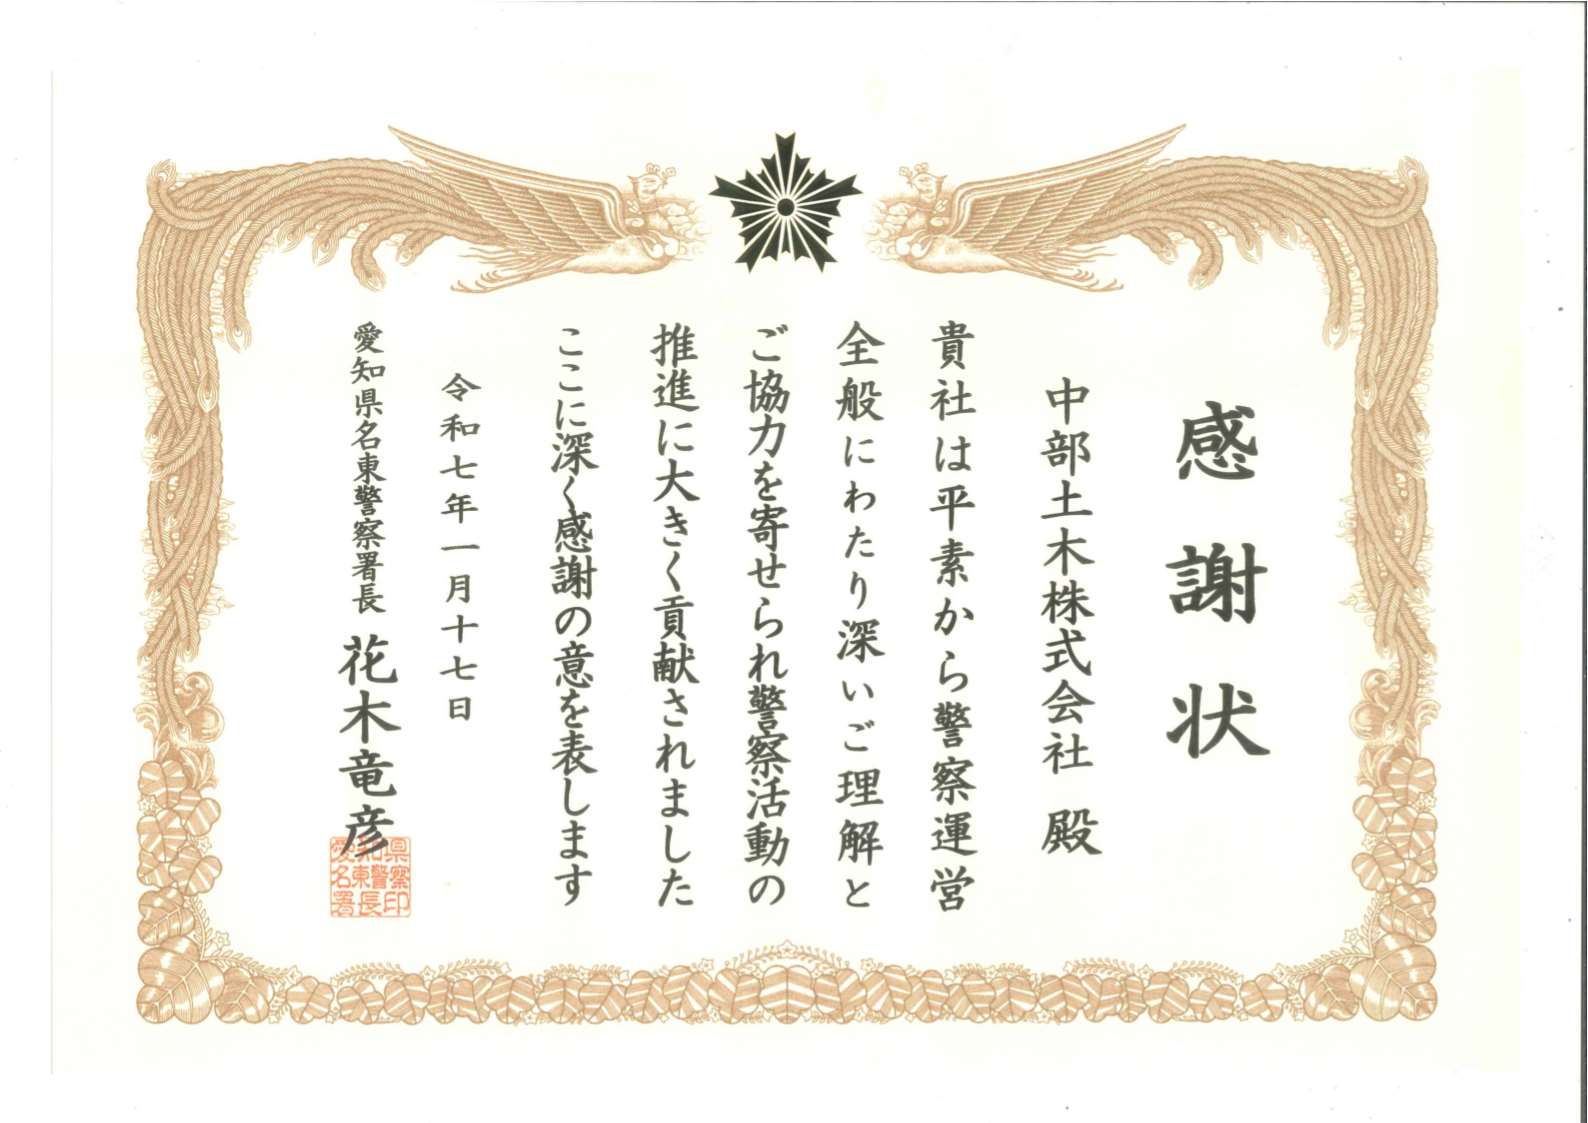 感謝状
中部土木株式会社 殿
貴社は平素から警察運営
全般にわたり深いご理解と
ご協力を寄せられ警察活動の
推進に大きく貢献されました
ここに深く感謝の意を表します
令和七年一月十七日
愛知県名東警察署長 花木竜彦
愛知県
名東警察
署長印